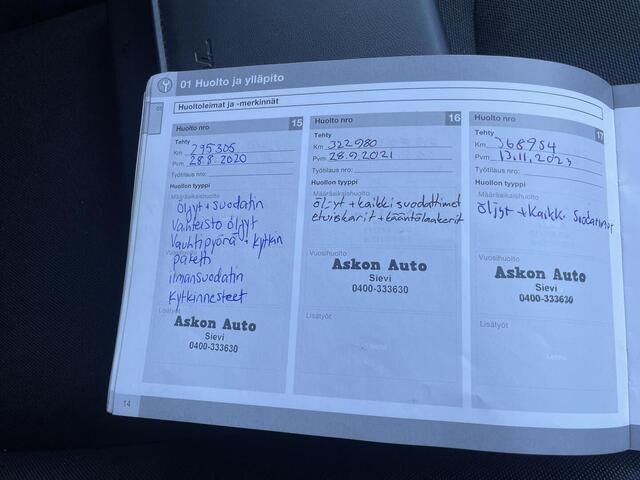 01 Huolto ja ylläpito
Huoltoleimat ja -merkinnät
Huolto nro 15
Tehty
Km 295305
Pvm 28.8.2020
Työtilaus nro
Huollon tyyppi
Määräaikaishuolto
Öljyt + suodatin
Vaihteisto öljyt
Vauhtipyörä + kytkin
paketti
ilmansuodatin
Kytkinnesteet
Lisätyöt
Askon Auto
Sievi
0400-333630
14
Huolto nro 16
Tehty
Km 322980
Pvm 28.9.2021
Työtilaus nro
Huollon tyyppi
Määräaikaishuolto
öljyt + kaikki suodattimet
etuiskarit + kääntölaakerit
Vuosihuolto
Askon Auto
Sievi
0400-333630
Lisätyöt
Huolto nro 17
Tehty
Km 368954
Pvm 13.11.2023
Työtilaus nro
Huollon tyyppi
Määräaikaishuolto
Öljyt + kaikki
Vuosihuolto
Askon Auto
Sievi
0400-333630
Lisätyöt